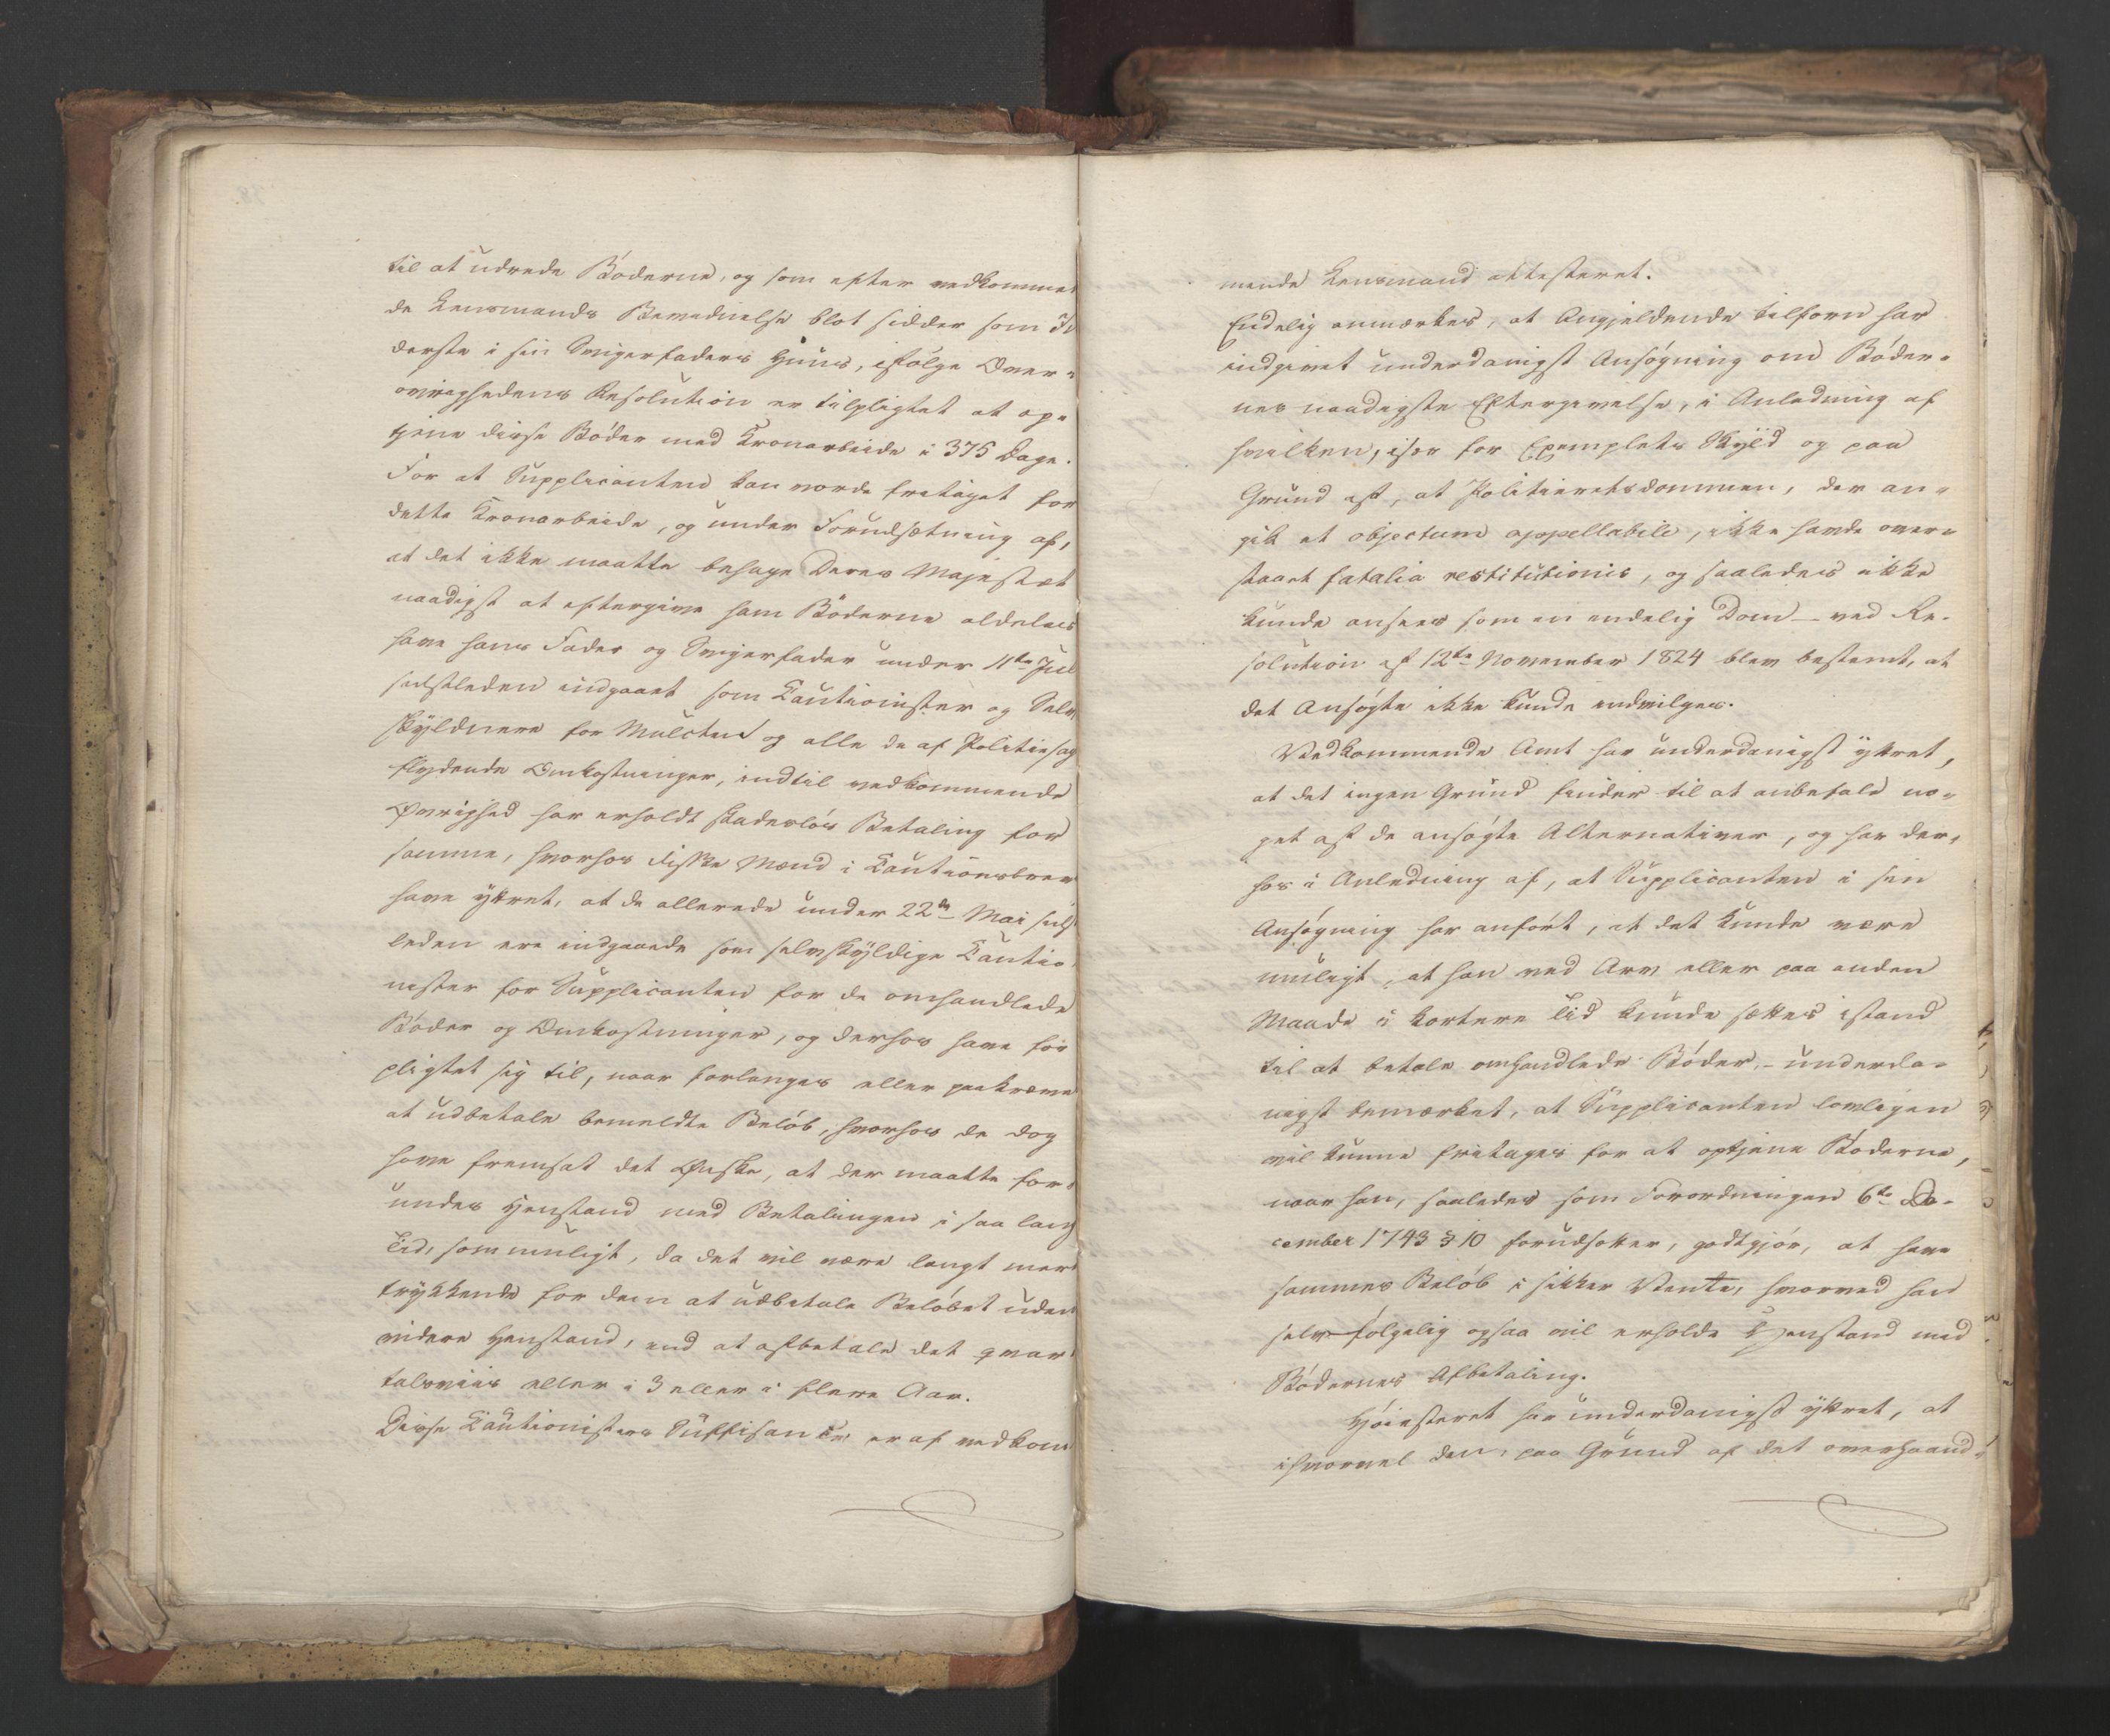 til at udrede Bøderne, og som efter vedkommen
de Lensmands Bevidnelse blot sidder som In
derste i sin Svigerfaders Huus, ifølge Over-
øvrighedens Resolution er tilpligtet at op-
tjene disse Bøder med Kronarbeide i 375 Dage.
For at Supplicanten kan vorde fritaget for
dette Kronarbeide, og under Forudsætning af,
at det ikke maatte behage Deres Majestæt
naadigst at eftergive ham Bøderne aldeles
have hans Fader og Svigerfader under 11te Juli
sidstleden indgaaet som Cautionister og Selv
skyldnere for Mulcten og alle de af Politiesag
flydende Omkostninger, indtil vedkommende
Øvrighed har erholdt skadesløs Betaling for
samme, hvorhos disse Mænd i Cautionsbrev
have yttret, at de allerede under 22de Mai sidst
leden ere indgaaede som selvskyldige Cautio-
nister for Supplicanten for de omhandlede
Bøder og Omkostninger, og derhos have for
pligtet sig til, naar forlanges eller paakræves
at udbetale bemeldte Beløb, hvorhos de dog
have fremsat det Ønske, at der maatte for-
undes Henstand med Betalingen i saa lang
Tid, som muligt, da det vil være langt mere
trykkende for dem at udbetale Beløbet uden
videre Henstand, end at afbetale det qvar-
talsviis eller i 3 eller i flere Aar.
Disse Cautionisters Suffisance er af vedkom
mende Lensmand attesteret.
Endelig anmærkes, at Angjeldende tilforn har
indgivet underdanigst Ansøgning om Bøder-
nes naadigste Eftergivelse, i Anledning af
hvilken, især for Exemplets Skyld og paa
Grund af, at Politieretsdommen, der an-
gik et objectum appellabile, ikke havde over-
staaet fatalia restitutionis, og saaledes ikke
kunde ansees som en endelig Dom – ved Re-
solution af 12te November 1824 blev bestemt, at
det Ansøgte ikke kunde indvilges.
Vedkommende Amt har underdanigst yttret,
at det ingen Grund finder til at anbefale no-
get af de ansøgte Alternativer, og har der-
hos i Anledning af, at Supplicanten i sin
Ansøgning har anført, at det kunde være
muligt, at han ved Arv eller paa anden
Maade i kortere Tid kunde sættes istand
til at betale omhandlede Bøder, – underda-
nigst bemærket, at Supplicanten lovligen
vil kunne fritages for at optjene Bøderne,
naar han, saaledes som Forordningen 6te De-
cember 1743 § 10 forudsætter, godtgjør, at have
sammes Beløb i sikker Vente, hvorved han
selvfølgelig ogsaa vil erholde Henstand med
Bødernes Afbetaling.
Høiesteret har underdanigst yttret, at
ihvorvel den, paa Grund af det overhaand-